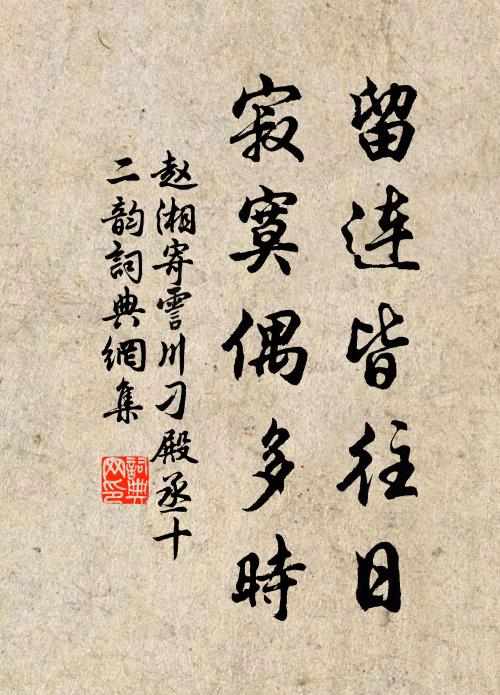 留连皆往日
寂寞偶多時
赵湘寄霅川刁殿丞十
二韵詞典網集
詞典网印